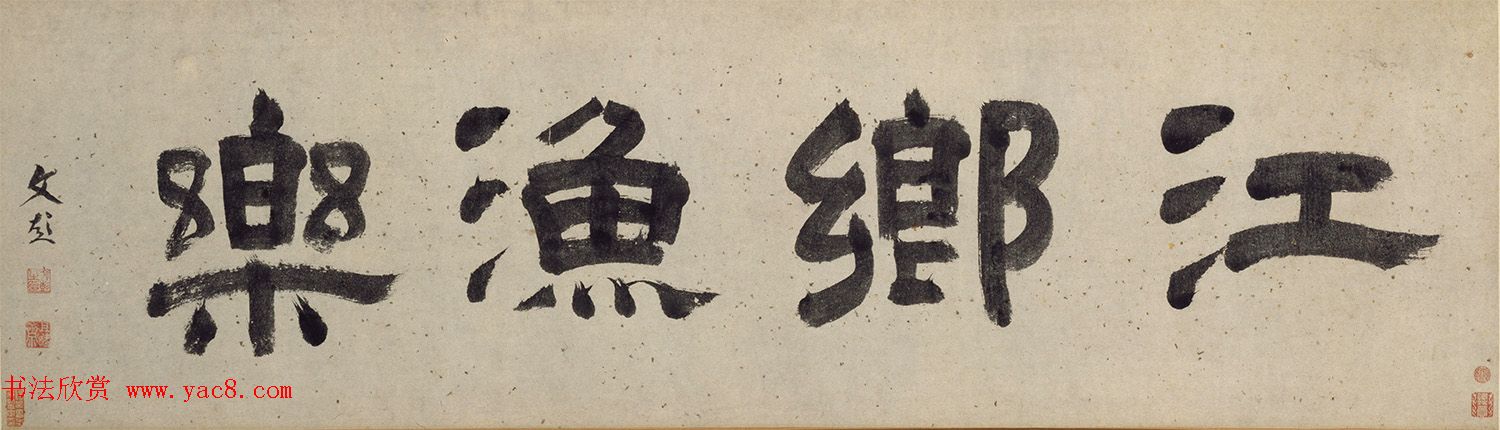 江鄉漁樂
文彭
书法欣赏 www.yac8.com